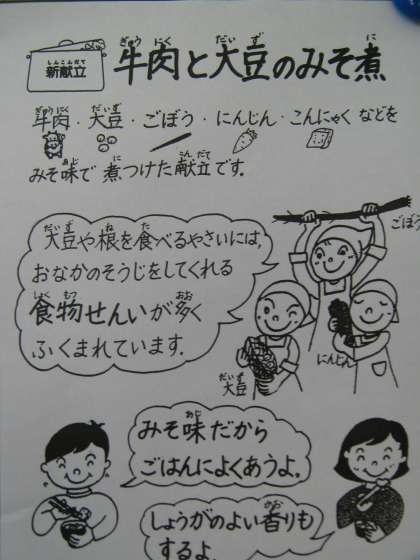 新献立
牛肉と大豆のみそ煮
牛肉・大豆・ごぼう・にんじん・こんにゃくなどを
みそ味で煮つけた献立です。
大豆や根を食べるやさいには、
おなかのそうじをしてくれる
食物せんいが多く
ふくまれています。
ごぼう
大豆
にんじん
みそ味だから
ごはんによくあうよ。
しょうがのよい香りも
するよ